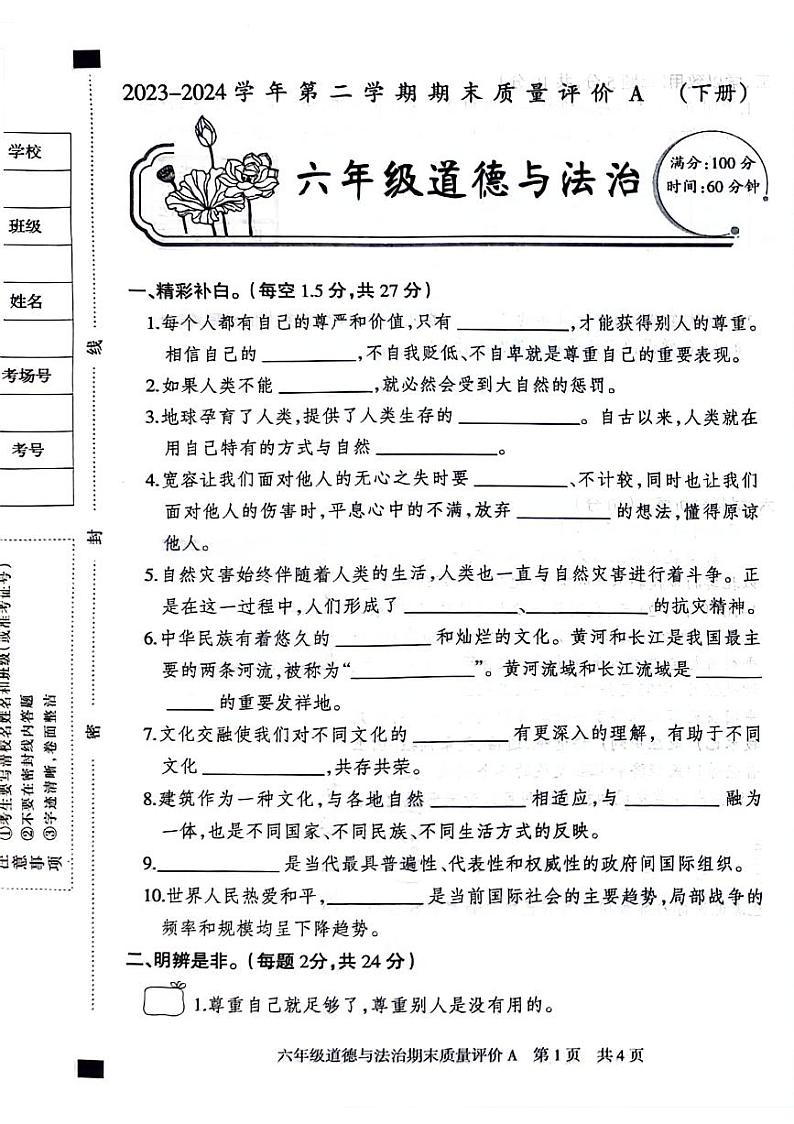 学校
班级
姓名
考场号
考号
线
封
密
注意事项
①考生要写清校名姓名和班级(或准考证号)
②不要在密封线内答题
③字迹清晰,卷面整洁
2023-2024学年第二学期期末质量评价 A （下册）
六年级道德与法治
满分:100分
时间:60分钟
一、精彩补白。（每空1.5分,共27分）
1.每个人都有自己的尊严和价值,只有____________,才能获得别人的尊重。
相信自己的____________,不自我贬低、不自卑就是尊重自己的重要表现。
2.如果人类不能____________,就必然会受到大自然的惩罚。
3.地球孕育了人类,提供了人类生存的____________。自古以来,人类就在
用自己特有的方式与自然____________。
4.宽容让我们面对他人的无心之失时要____________、不计较,同时也让我们
面对他人的伤害时,平息心中的不满,放弃____________的想法,懂得原谅
他人。
5.自然灾害始终伴随着人类的生活,人类也一直与自然灾害进行着斗争。正
是在这一过程中,人们形成了____________、____________的抗灾精神。
6.中华民族有着悠久的____________和灿烂的文化。黄河和长江是我国最主
要的两条河流,被称为“____________”。黄河流域和长江流域是_______
_____的重要发祥地。
7.文化交融使我们对不同文化的____________有更深入的理解，有助于不同
文化____________,共存共荣。
8.建筑作为一种文化,与各地自然____________相适应,与____________融为
一体,也是不同国家、不同民族、不同生活方式的反映。
9.____________是当代最具普遍性、代表性和权威性的政府间国际组织。
10.世界人民热爱和平,____________是当前国际社会的主要趋势,局部战争的
频率和规模均呈下降趋势。
二、明辨是非。（每题2分,共24分）
1.尊重自己就足够了,尊重别人是没有用的。
六年级道德与法治期末质量评价A 第1页 共4页